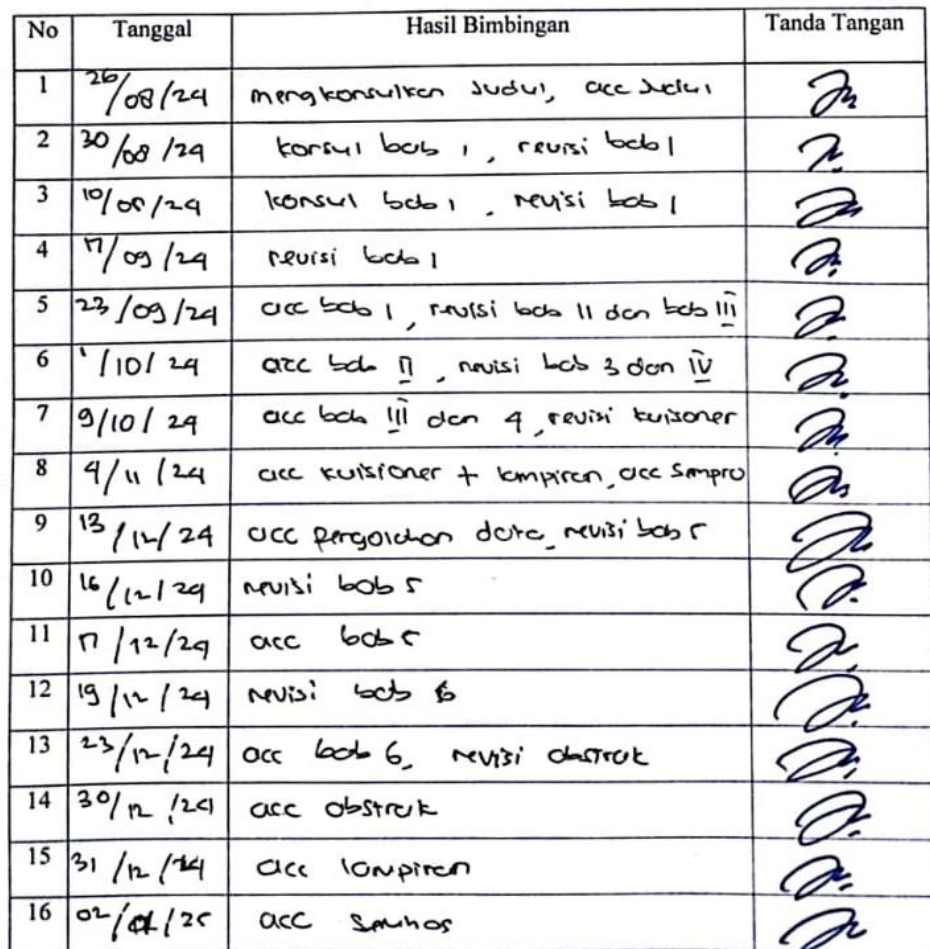 No Tanggal Hasil Bimbingan Tanda Tangan
1 26/08/24 mengkonsulkan Judul, acc Judul
2 30/08/24 konsul bab 1, revisi bab 1
3 konsul bab 1, revisi bab 1
4 17/09/24 revisi bab 1
5 23/09/24 acc bab 1, revisi bab II dan bab III
6 1/10/24 acc bab II, revisi bab 3 dan IV
7 9/10/24 acc bab III dan 4, revisi kuisoner
8 4/11/24 acc kuisioner + lampiran, acc Sempro
9 13/12/24 acc pengolahan data, revisi bab 5
10 16/12/24 revisi bab 5
11 17/12/24 acc bab 5
12 19/12/24 revisi bab 6
13 23/12/24 acc bab 6, revisi abstrak
14 30/12/24 acc abstrak
15 31/12/24 acc lampiran
16 02/01/25 acc Semhas